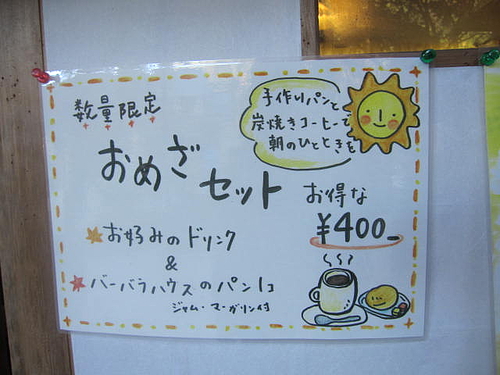 数量限定
手作りパンと
炭焼きコーヒーで
朝のひとときを
おめざセット
お得な
¥400_
お好みのドリンク
&
バーバラハウスのパン1コ
ジャム・マーガリン付